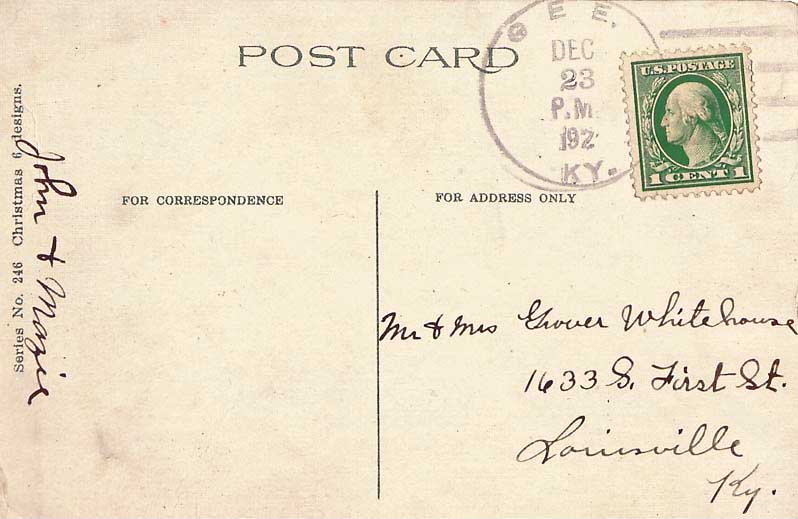 POST CARD
GEE.
DEC
23
P.M.
192
KY.
U.S. POSTAGE
1 CENT 1
Series No. 246 Christmas 6 designs.
John & Mazie
FOR CORRESPONDENCE
FOR ADDRESS ONLY
Mr & Mrs Grover Whitehouse
1633 S. First St.
Louisville
Ky.